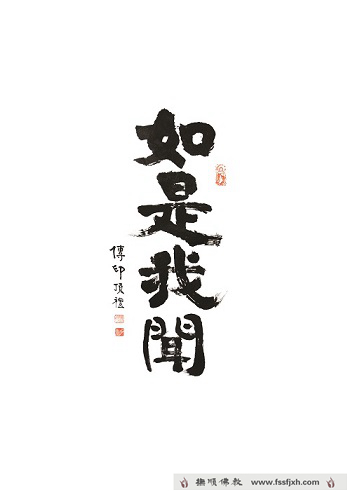 如是我聞
傳印頂禮
撫順佛教 www.fssfjxh.com